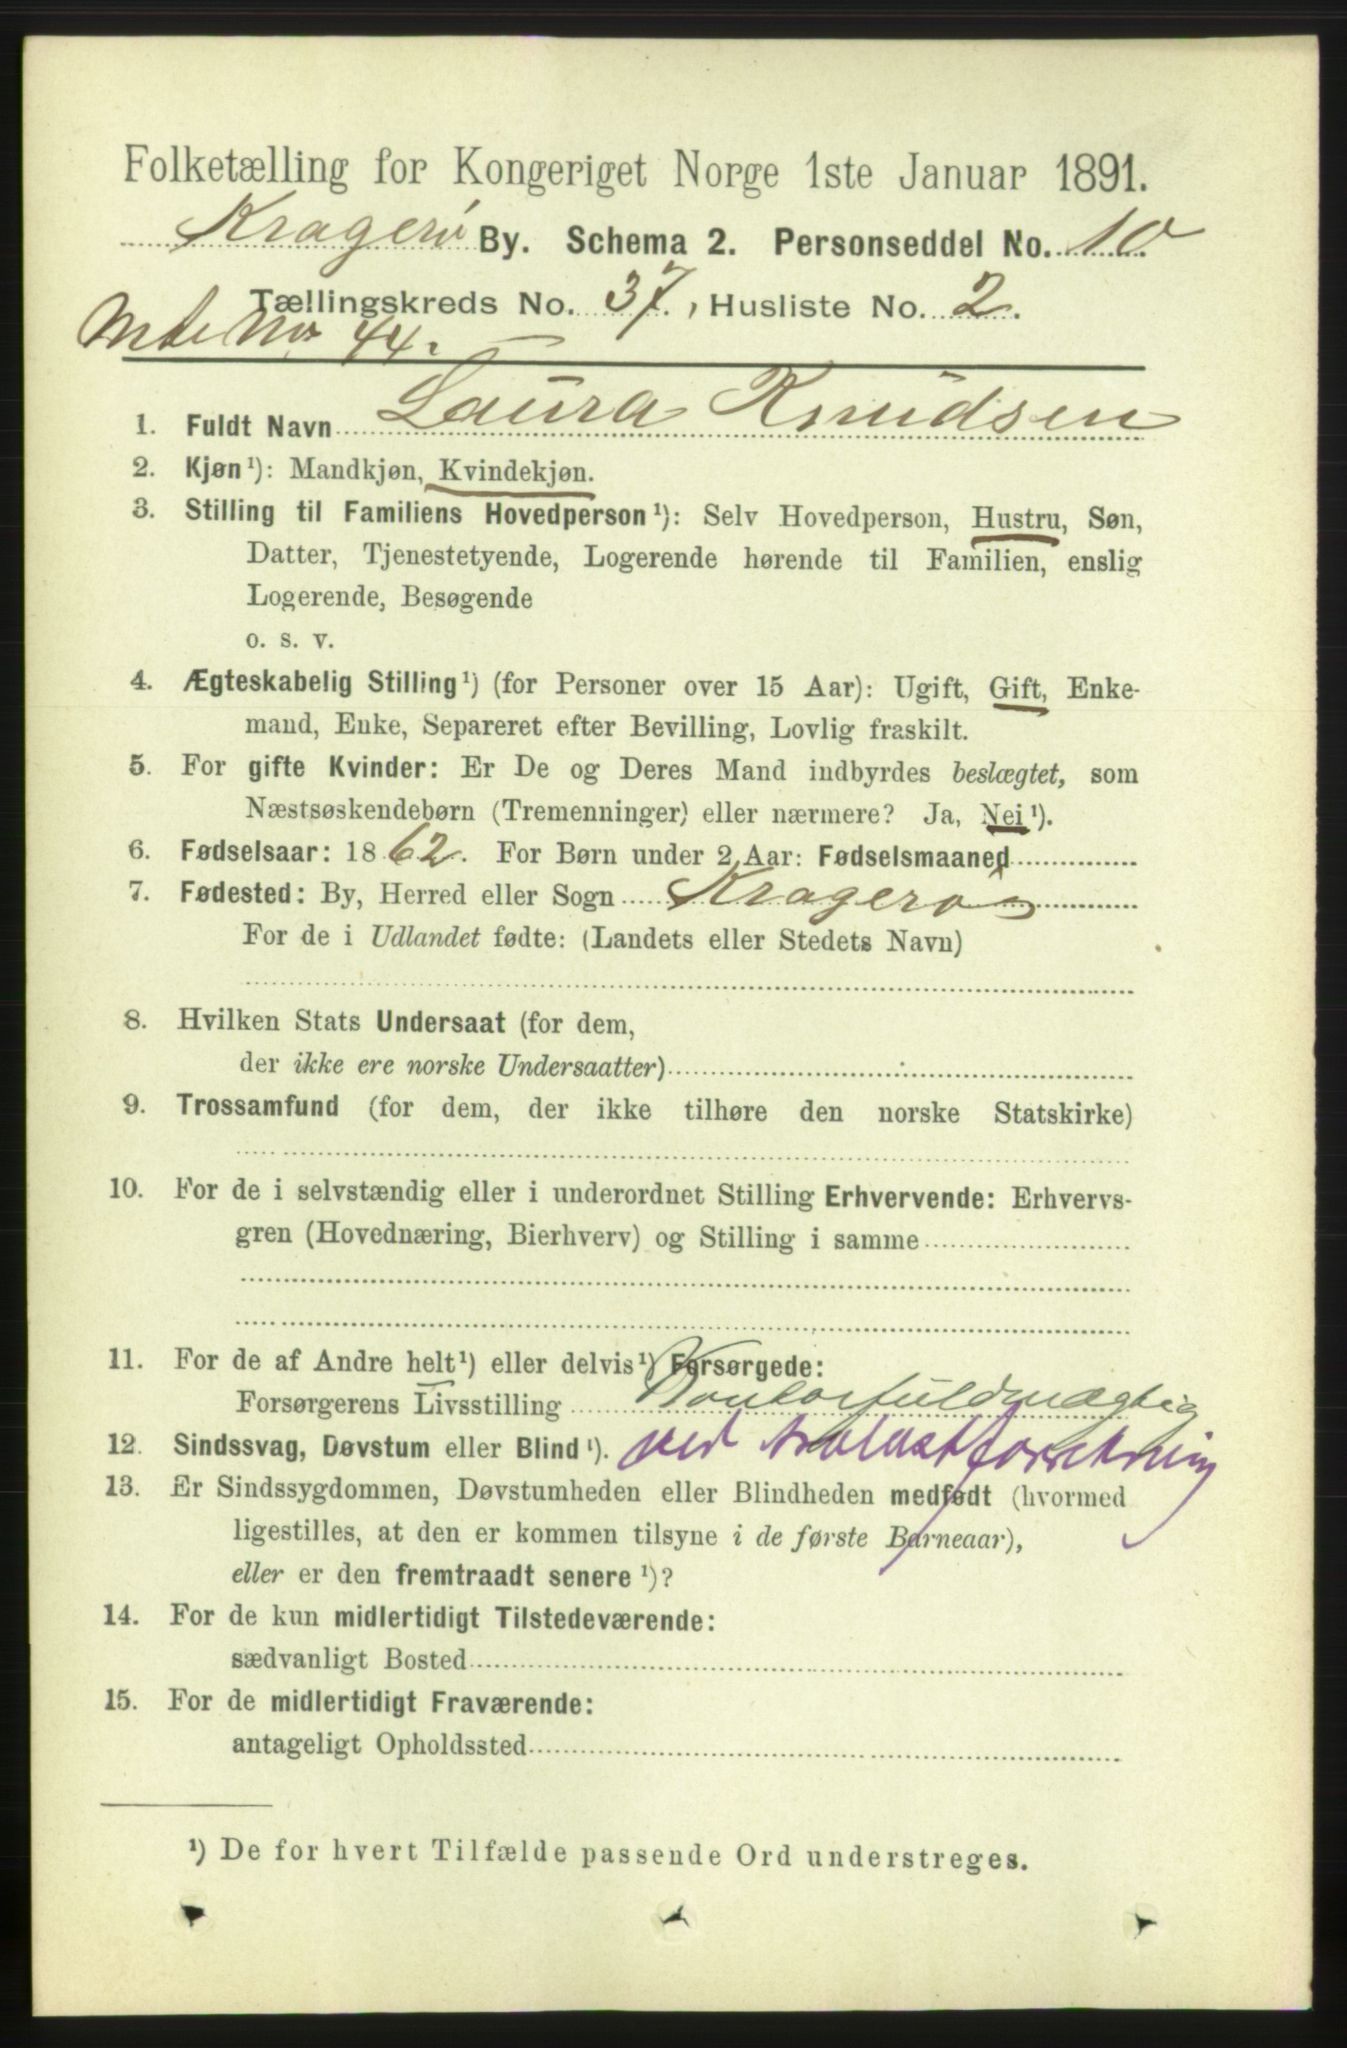 Folketælling for Kongeriget Norge 1ste Januar 1891.
Kragerø By. Schema 2. Personseddel No. 10
Tællingskreds No. 37., Husliste No. 2.
Mt No 44.
1. Fuldt Navn Laura Knudsen
2. Kjøn¹): Mandkjøn, Kvindekjøn.
3. Stilling til Familiens Hovedperson¹): Selv Hovedperson, Hustru, Søn,
Datter, Tjenestetyende, Logerende hørende til Familien, enslig
Logerende, Besøgende
o. s. v.
4. Ægteskabelig Stilling¹) (for Personer over 15 Aar): Ugift, Gift, Enke-
mand, Enke, Separeret efter Bevilling, Lovlig fraskilt.
5. For gifte Kvinder: Er De og Deres Mand indbyrdes beslægtet, som
Næstsøskendebørn (Tremenninger) eller nærmere? Ja, Nei¹).
6. Fødselsaar: 1862. For Børn under 2 Aar: Fødselsmaaned
7. Fødested: By, Herred eller Sogn Kragerø
For de i Udlandet fødte: (Landets eller Stedets Navn)
8. Hvilken Stats Undersaat (for dem,
der ikke ere norske Undersaatter)
9. Trossamfund (for dem, der ikke tilhøre den norske Statskirke)
10. For de i selvstændig eller i underordnet Stilling Erhvervende: Erhvervs-
gren (Hovednæring, Bierhverv) og Stilling i samme
11. For de af Andre helt¹) eller delvis¹) Forsørgede:
Forsørgerens Livsstilling Kontorfuldmægtig
12. Sindssvag, Døvstum eller Blind¹). ved trælastforretning
13. Er Sindssygdommen, Døvstumheden eller Blindheden medfødt (hvormed
ligestilles, at den er kommen tilsyne i de første Barneaar),
eller er den fremtraadt senere¹)?
14. For de kun midlertidigt Tilstedeværende:
sædvanligt Bosted
15. For de midlertidigt Fraværende:
antageligt Opholdssted
¹) De for hvert Tilfælde passende Ord understreges.